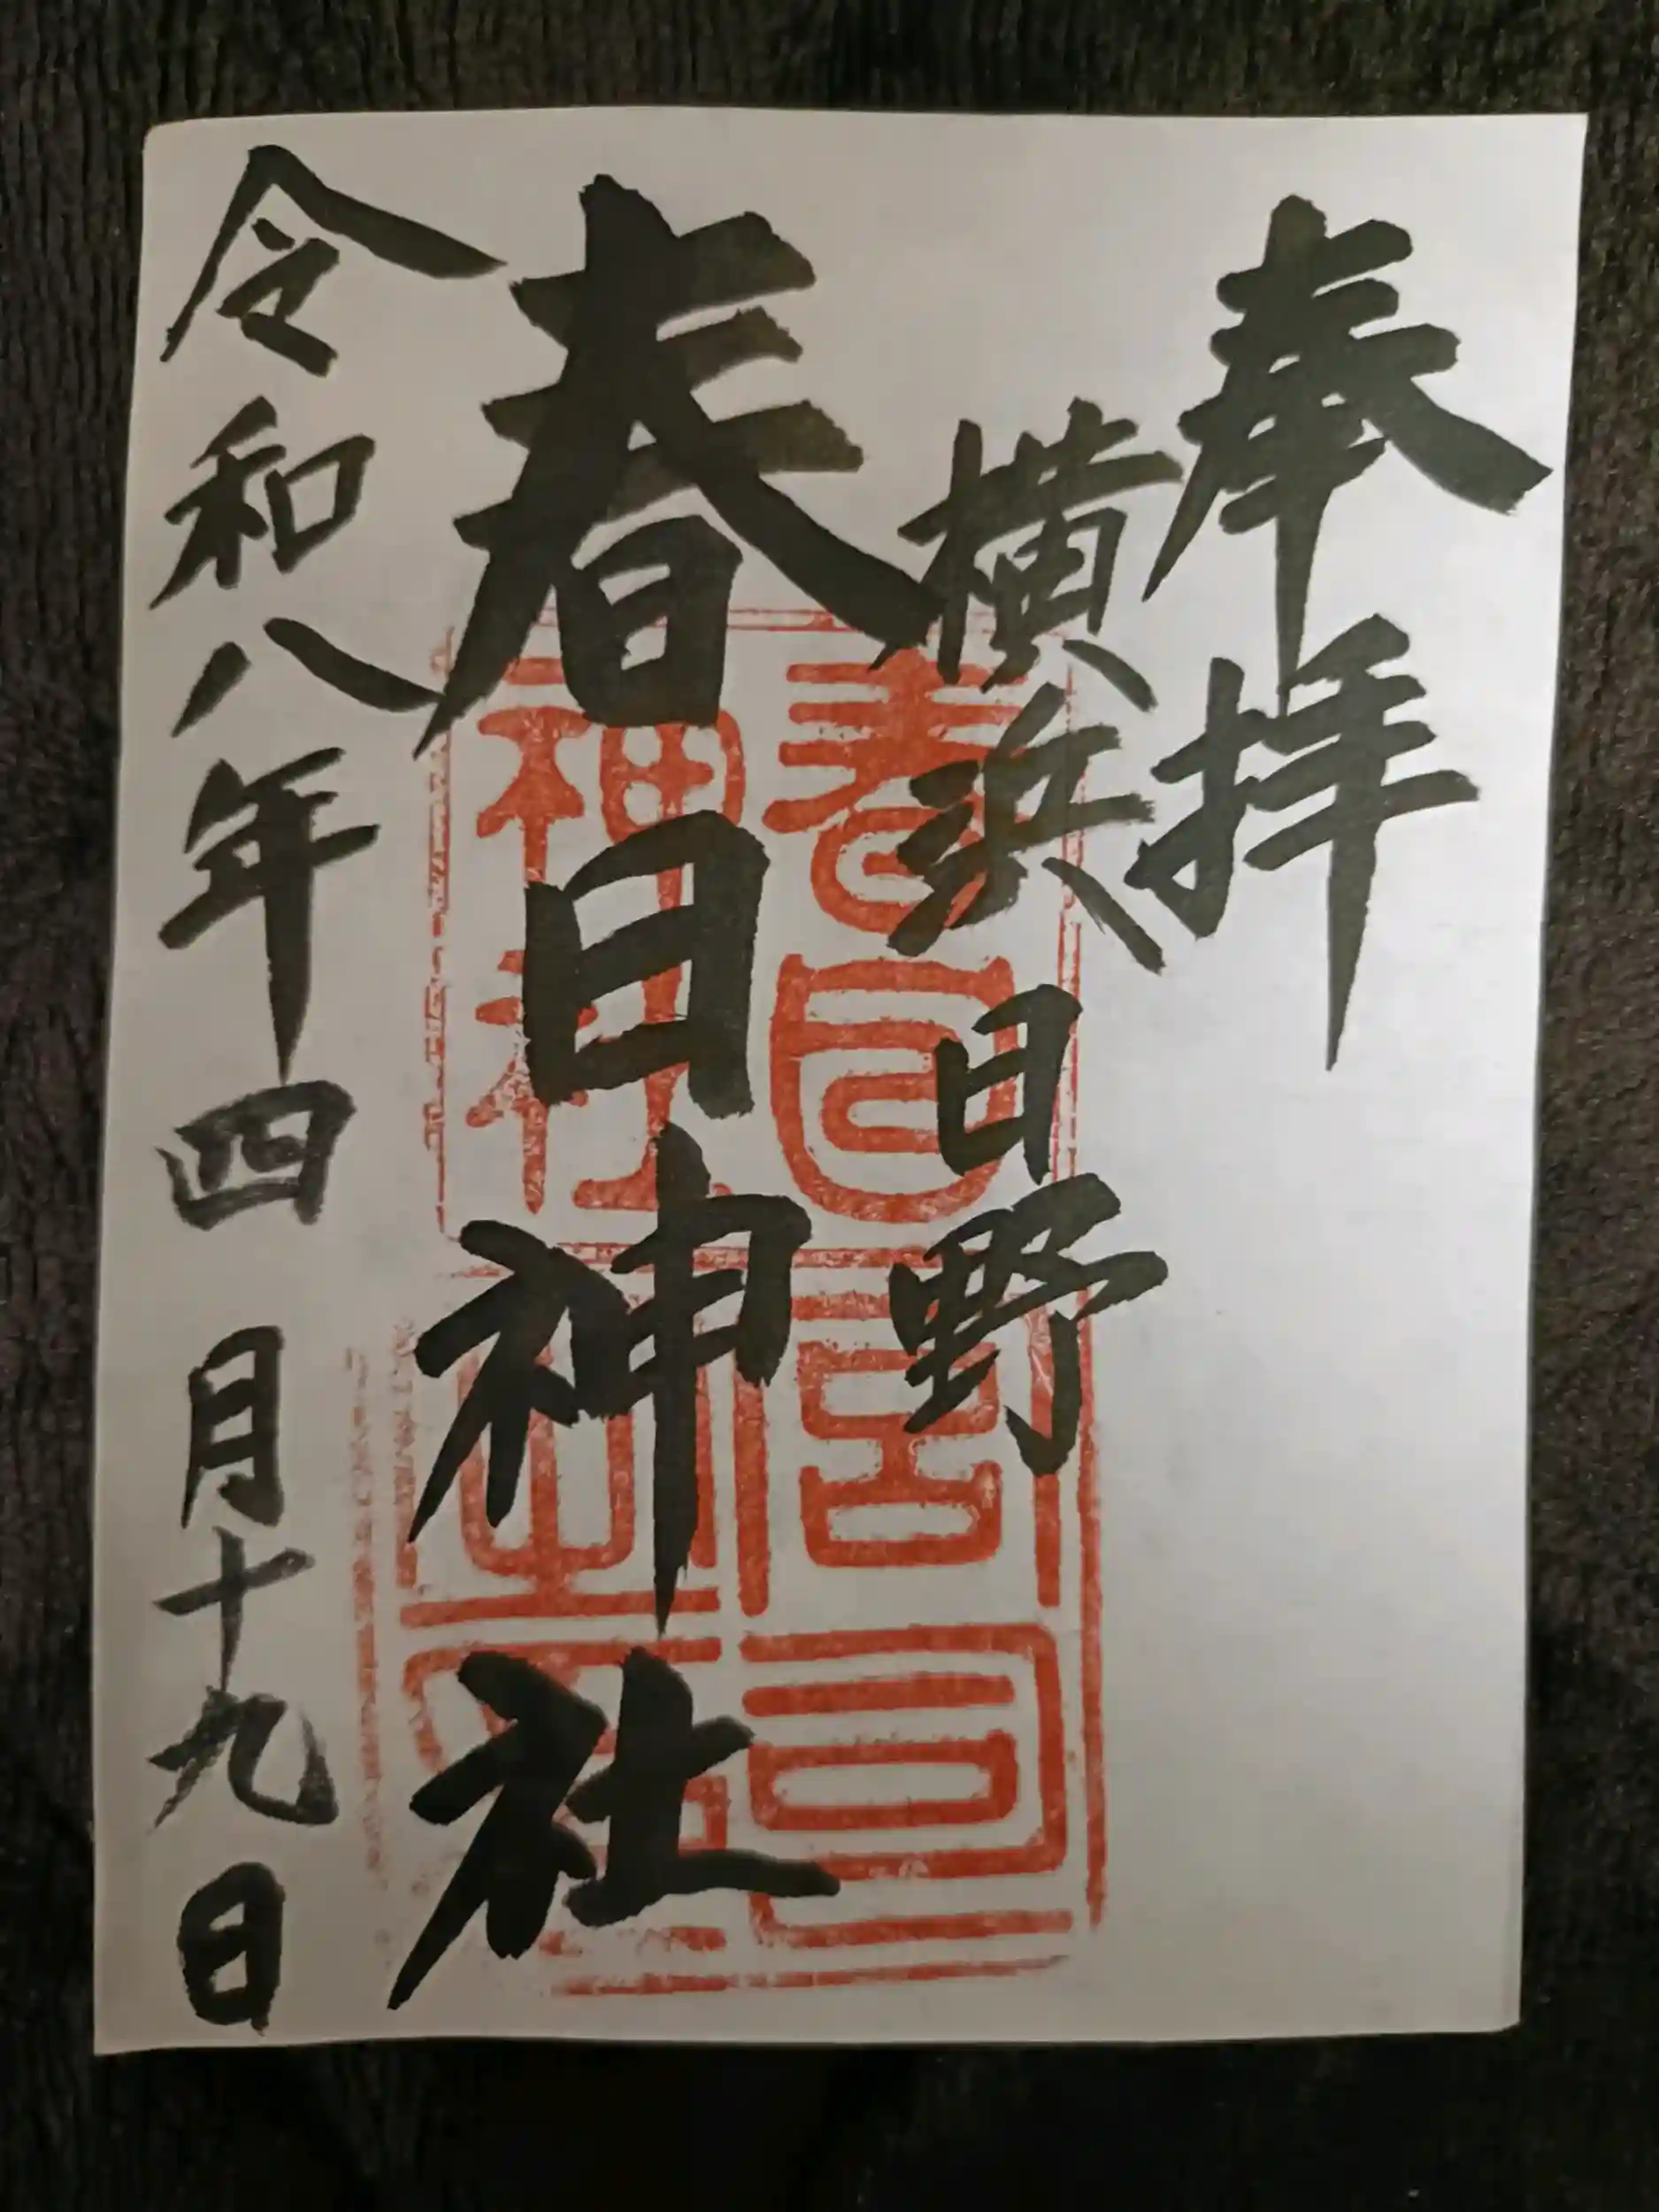 奉拝
横浜日野
春日神社
令和八年四月十九日
春日神社